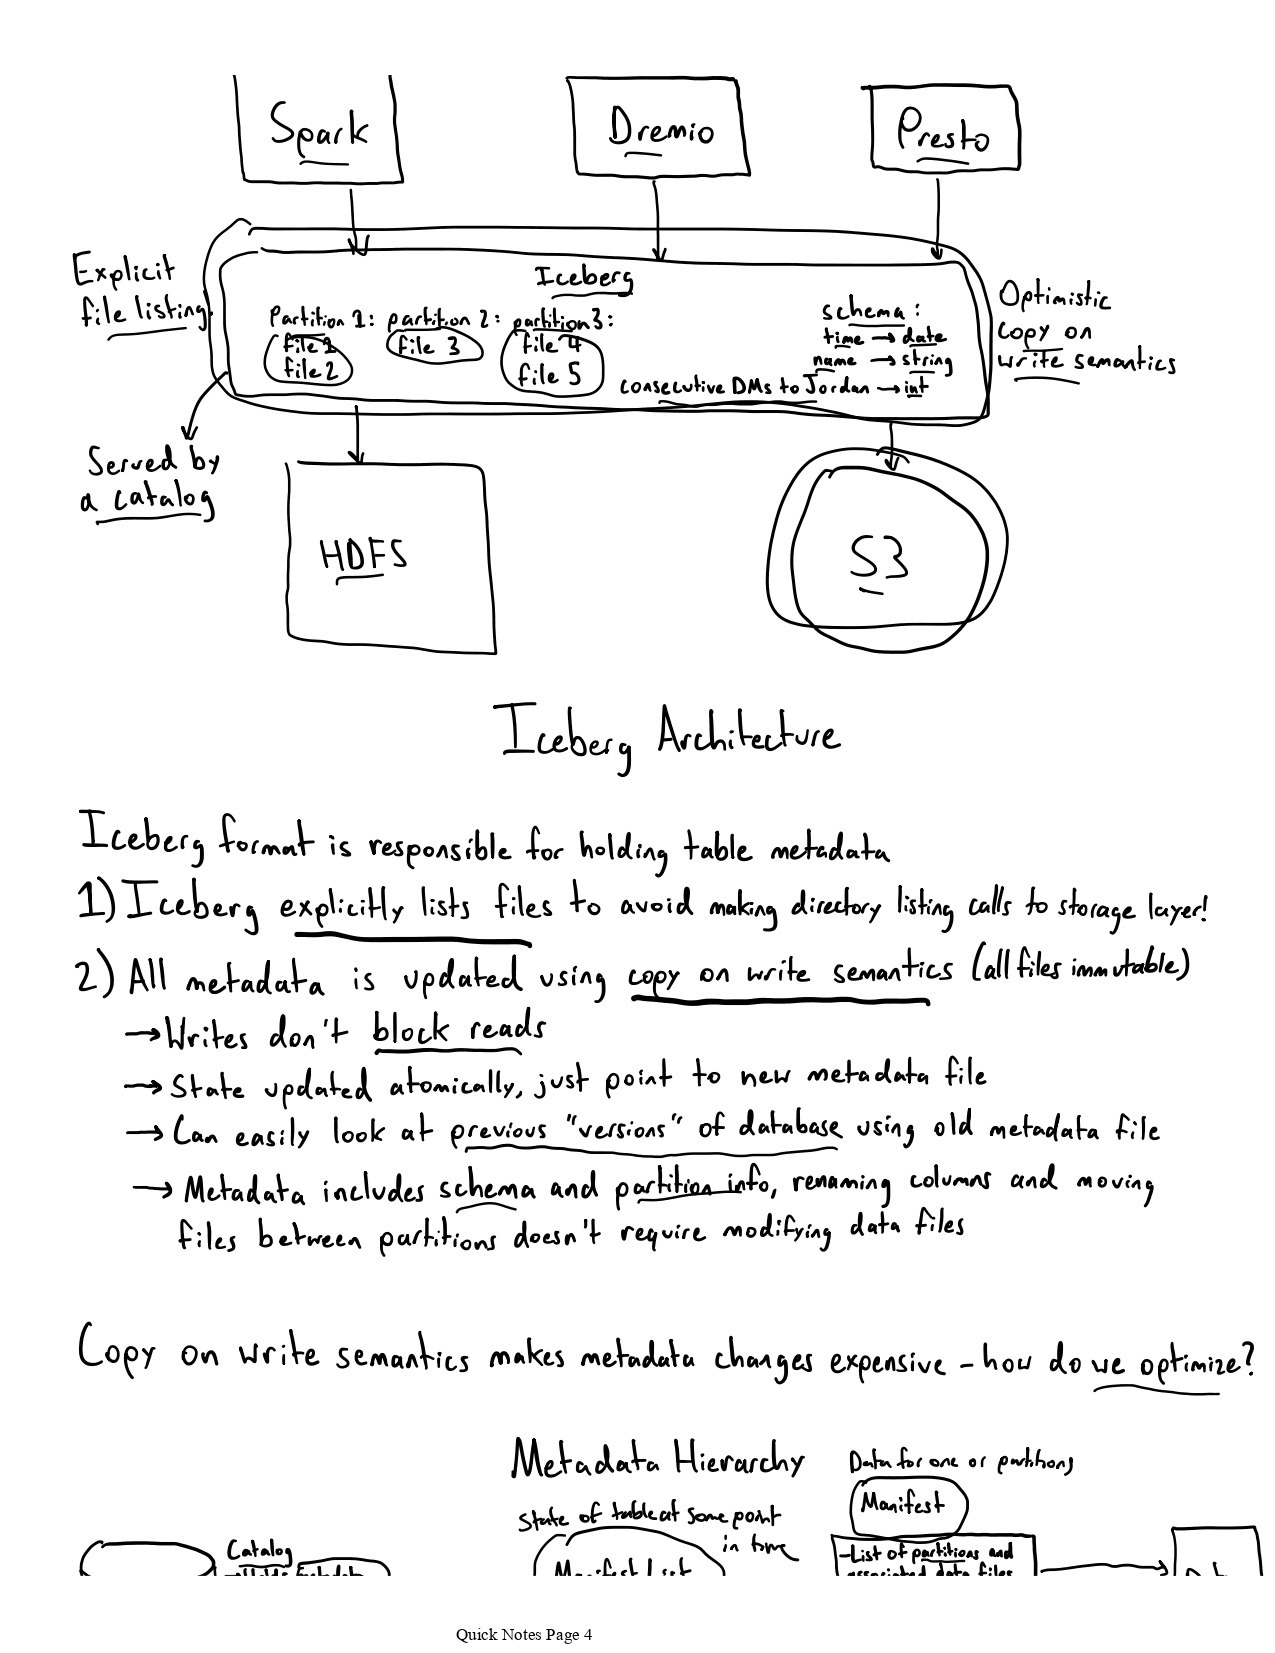 Spark
Dremio
Presto
Explicit
file listing
Iceberg
Partition 1: partition 2: partition 3:
file 1
file 2
file 3
file 4
file 5
schema:
time → date
name → string
consecutive DMs to Jordan → int
Optimistic
copy on
write semantics
Served by
a catalog
HDFS
S3
Iceberg Architecture
Iceberg format is responsible for holding table metadata
1) Iceberg explicitly lists files to avoid making directory listing calls to storage layer!
2) All metadata is updated using copy on write semantics (all files immutable)
→ Writes don't block reads
→ State updated atomically, just point to new metadata file
→ Can easily look at previous "versions" of database using old metadata file
→ Metadata includes schema and partition info, renaming columns and moving
files between partitions doesn't require modifying data files
Copy on write semantics makes metadata changes expensive - how do we optimize?
Metadata Hierarchy
Data for one or partitions
Manifest
State of table at some point
in time
Catalog
Manifest List
-List of partitions and
associated data files
Quick Notes Page 4